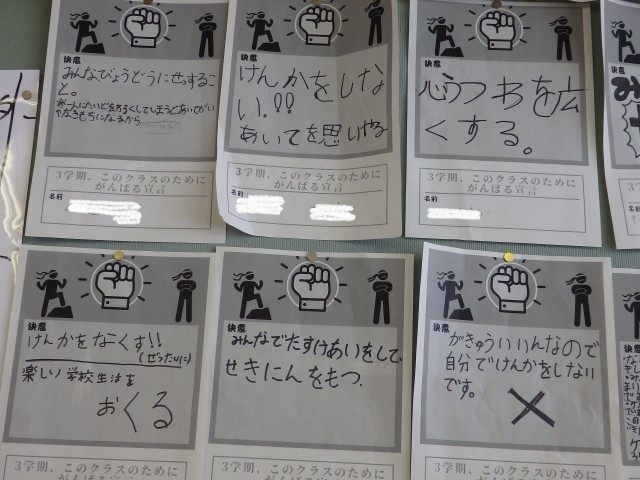 決意
みんなびょうどうにせっするこ
と。
いやなきもちになるから
3学期、このクラスのために
がんばる宣言
名前
決意
けんかをしな
い.!!
あいてを思いやる
3学期、このクラスのために
がんばる宣言
名前
決意
心のうつわを広
くする。
3学期、このクラスのために
がんばる宣言
名前
決意
けんかをなくす!!
(ぜったいに)
楽しい学校生活を
おくる
3学期、このクラスのために
がんばる宣言
決意
みんなでたすけあいをして、
せきにんをもつ.
3学期、このクラスのために
がんばる宣言
決意
がきゅういいんなので
自分でけんかをしない
です。
3学期、このクラスのために
がんばる宣言